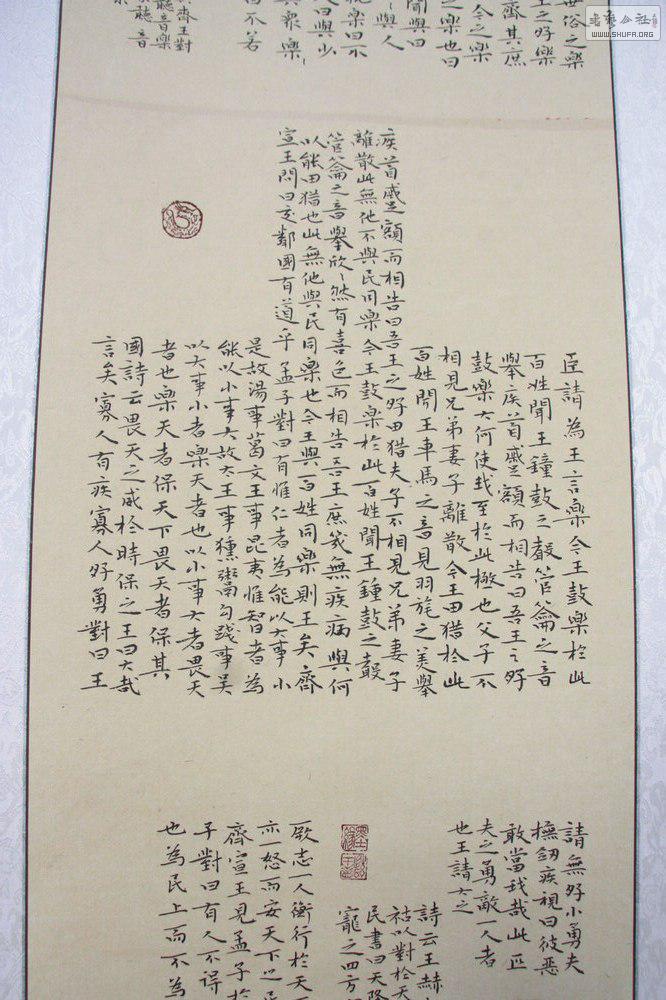 書藝公社
WWW.SHUFA.ORG
俗之樂
王之好樂
齊其庶
今之樂
之樂也曰
聞與曰
與人
樂曰不
曰與少
與衆樂
曰不若
齊王對
聽音樂
聽音
臣請為王言樂今王鼓樂於此
百姓聞王鐘鼓之聲管籥之音
舉疾首蹙額而相告曰吾王之好
鼓樂夫何使我至於此極也父子不
相見兄弟妻子離散今王田獵於此
百姓聞王車馬之音見羽旄之美舉
疾首蹙額而相告曰吾王之好田獵夫子不相見兄弟妻子
離散此無他不與民同樂今王鼓樂於此百姓聞王鍾鼓之聲
管籥之音舉欣〻然有喜色而相告吾王庶幾無疾病與何
以能田獵也此無他與民同樂也今王與百姓同樂則王矣齊
宣王問曰交鄰國有道乎孟子對曰有惟仁者為能以大事小
是故湯事葛文王事昆夷惟智者為
能以小事大故大王事獯鬻勾踐事吳
以大事小者樂天者也以小事大者畏天
者也樂天者保天下畏天者保其
國詩云畏天之威於時保之王曰大哉
言矣寡人有疾寡人好勇對曰王
請無好小勇夫
撫劒疾視曰彼惡
敢當我哉此匹
夫之勇敵一人者
也王請大之
詩云王赫
祜以對於天
民書曰天降
寵之四方
厥志一人衡行於天
亦一怒而安天下之民
齊宣王見孟子於
子對曰有人不得
也為民上而不為